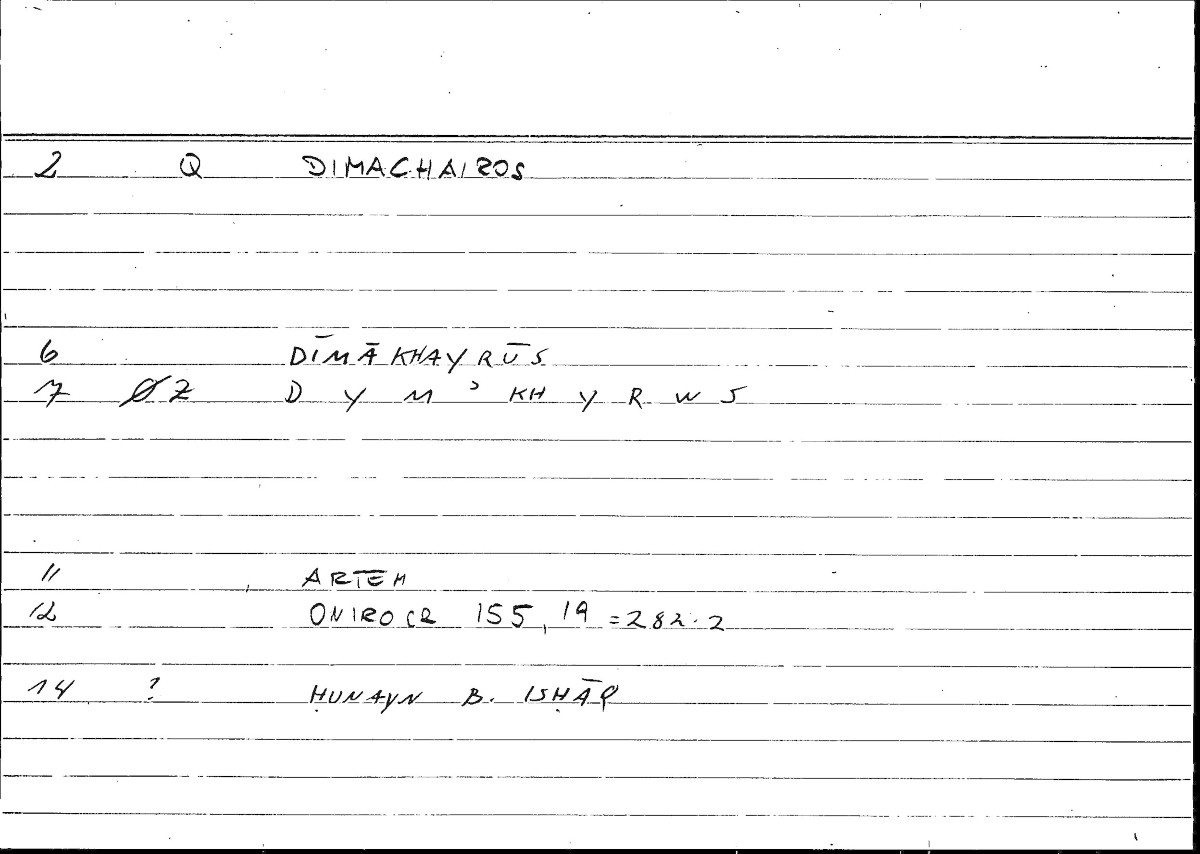 2 Q DIMACHAIROS
6 DĪMĀKHAYRŪS
7 ØZ D Y M ʾ KH Y R W S
11 ARTEM
12 ONIROCR 155,19 = 282.2
14 ? ḤUNAYN B. ISḤĀQ